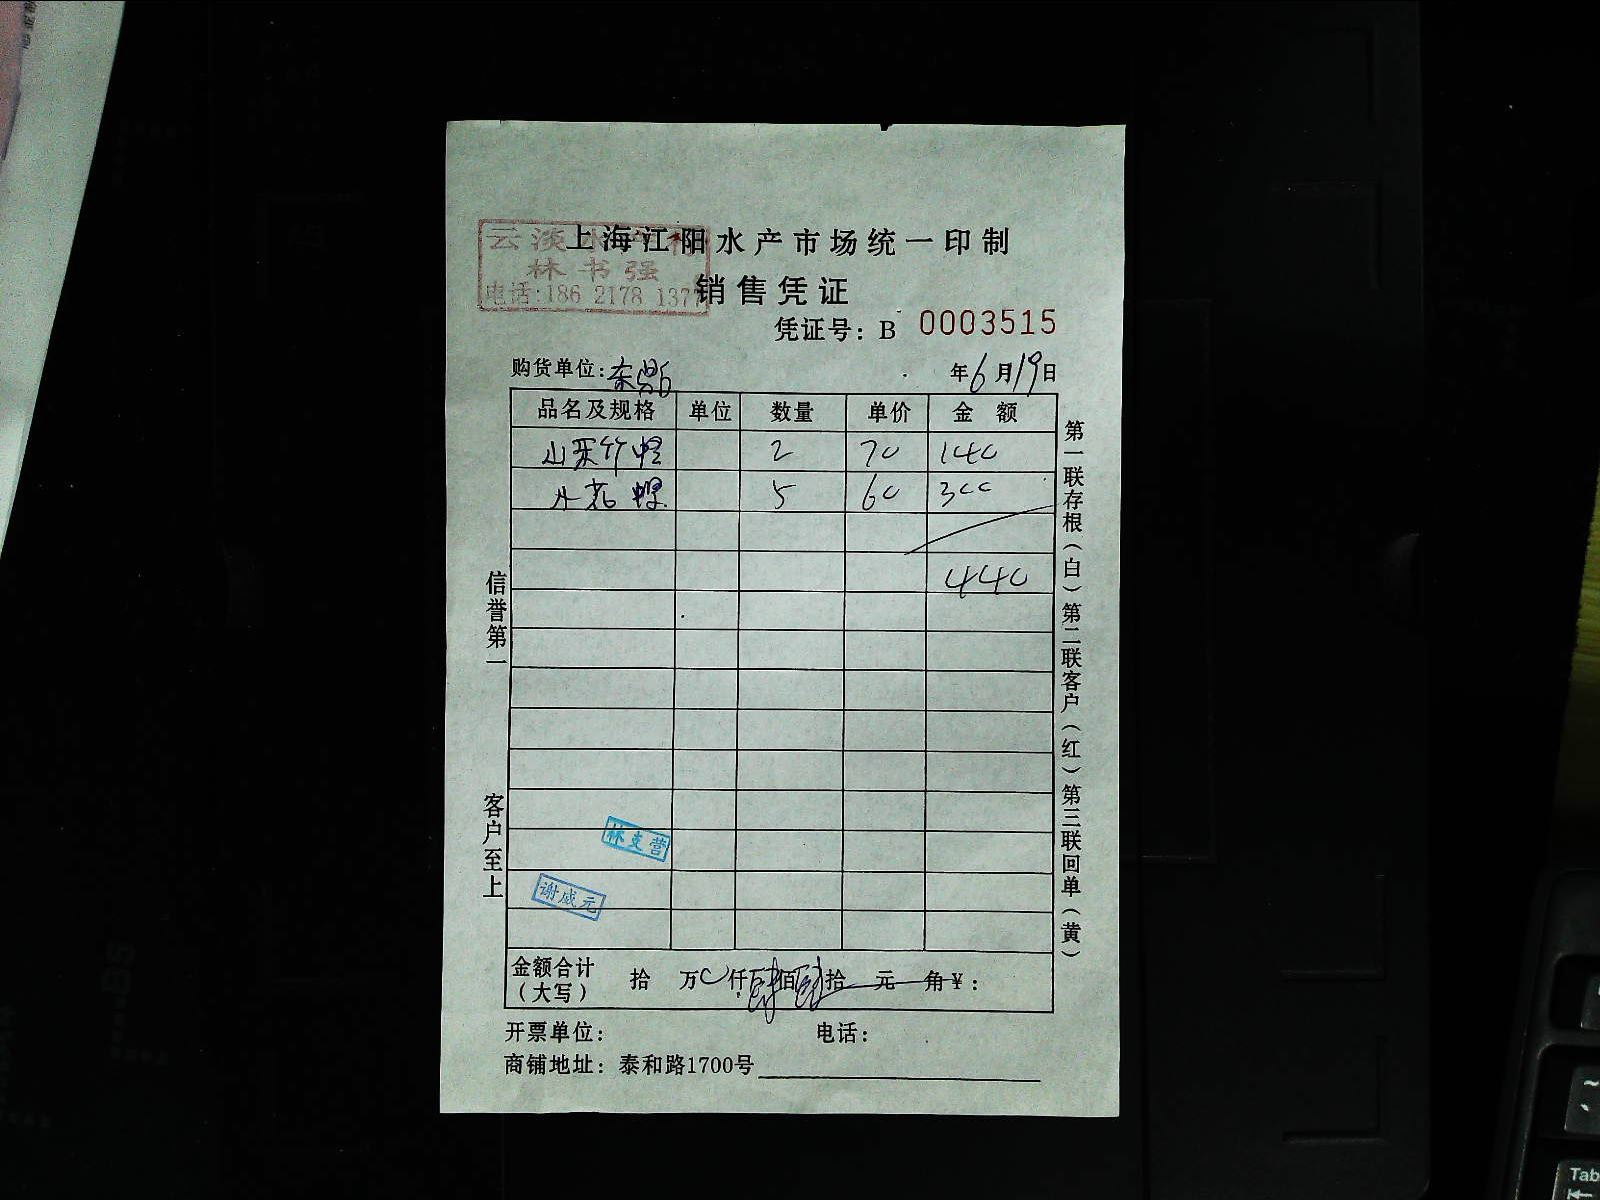 云淡水产行
林书强
电话:186 2178 1377
上海江阳水产市场统一印制
销售凭证
凭证号: B 0003515
购货单位:
年6月19日
品名及规格 单位 数量 单价 金额
山东竹蛏 2 70 140
小花 5 60 300
440
信誉第一
客户至上
第一联存根(白) 第二联客户(红) 第三联回单(黄)
林支营
谢成元
金额合计(大写) 拾 万0仟肆佰肆拾 元 角¥:
开票单位: 电话:
商铺地址: 泰和路1700号
Tab